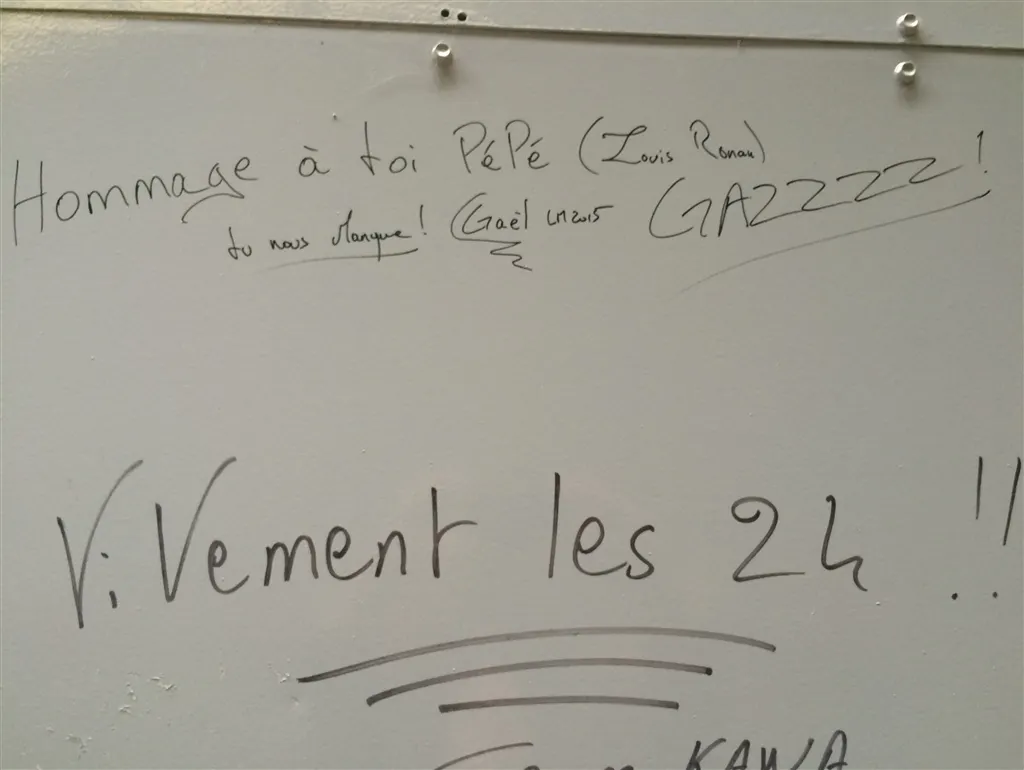 Hommage à toi PéPé (Louis Ronan)
tu nous Manque! Gaël LM2015 GAZZZZ!
ViVement les 24 !!
KAWA